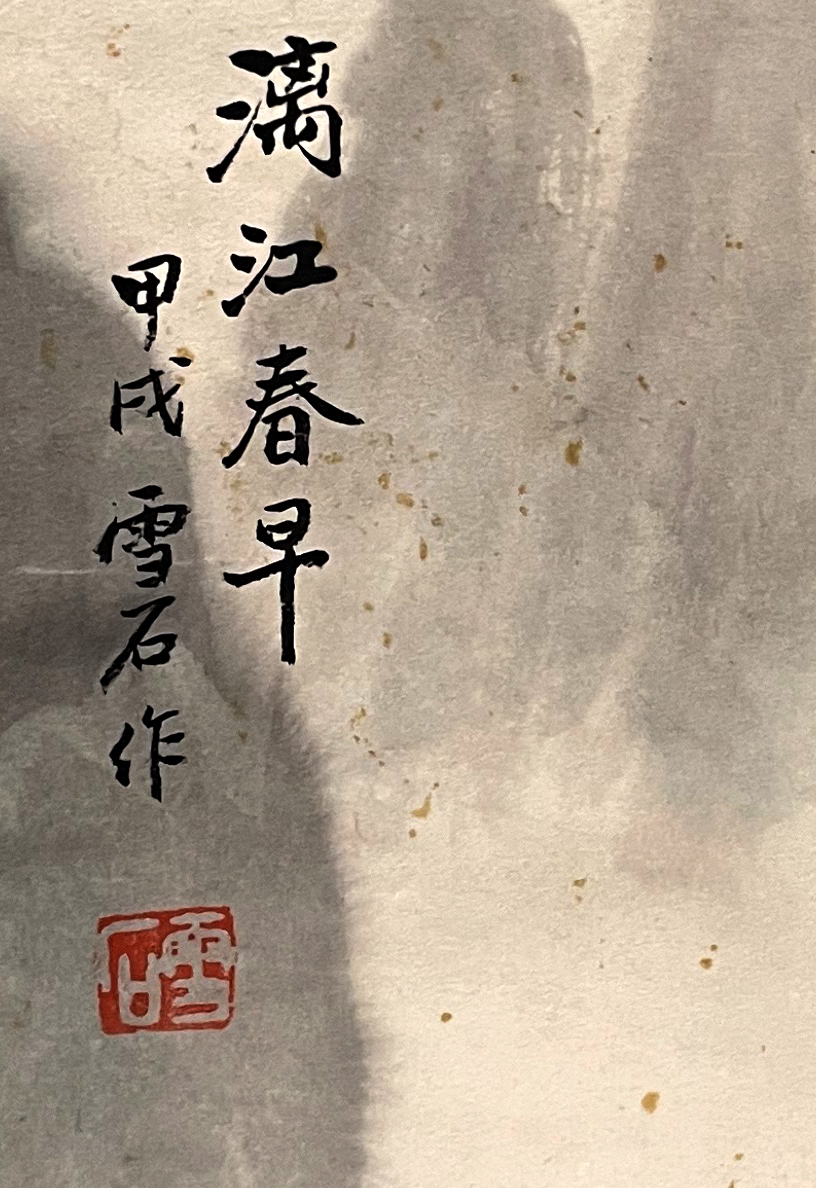 漓江春早
甲戌 雪石作
雪石